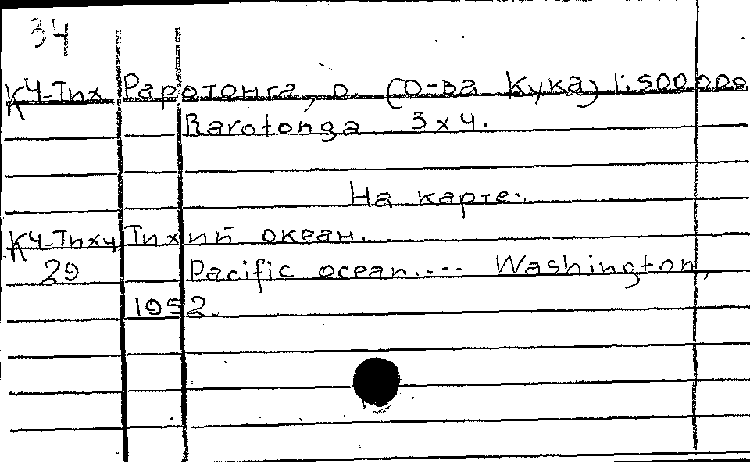 34
К4-Тих Раротонга, о. (О-ва Кука) 1:500 000
Rarotonga 3x4.
На карте:
К4-Тих4 Тихий океан.
29 Pacific ocean.... Washington,
1952.